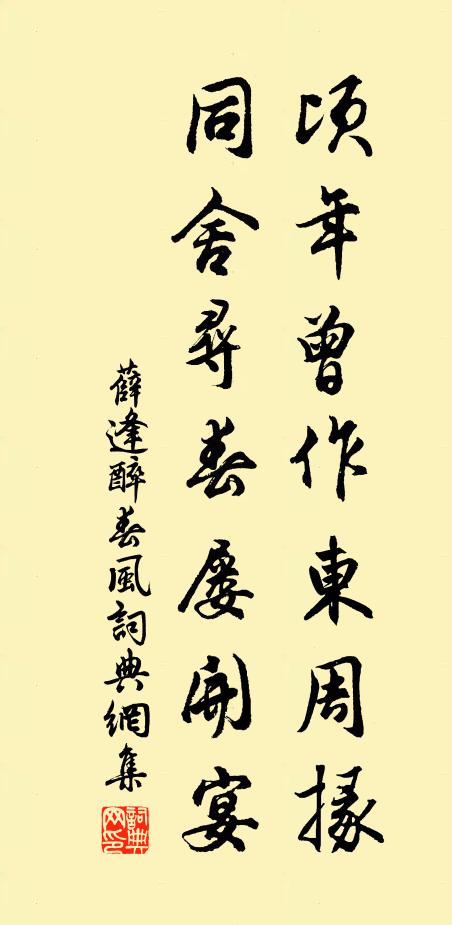 頃年曾作東周掾
同舍尋春屢開宴
薛逢醉春風詞典網集
詞典網印